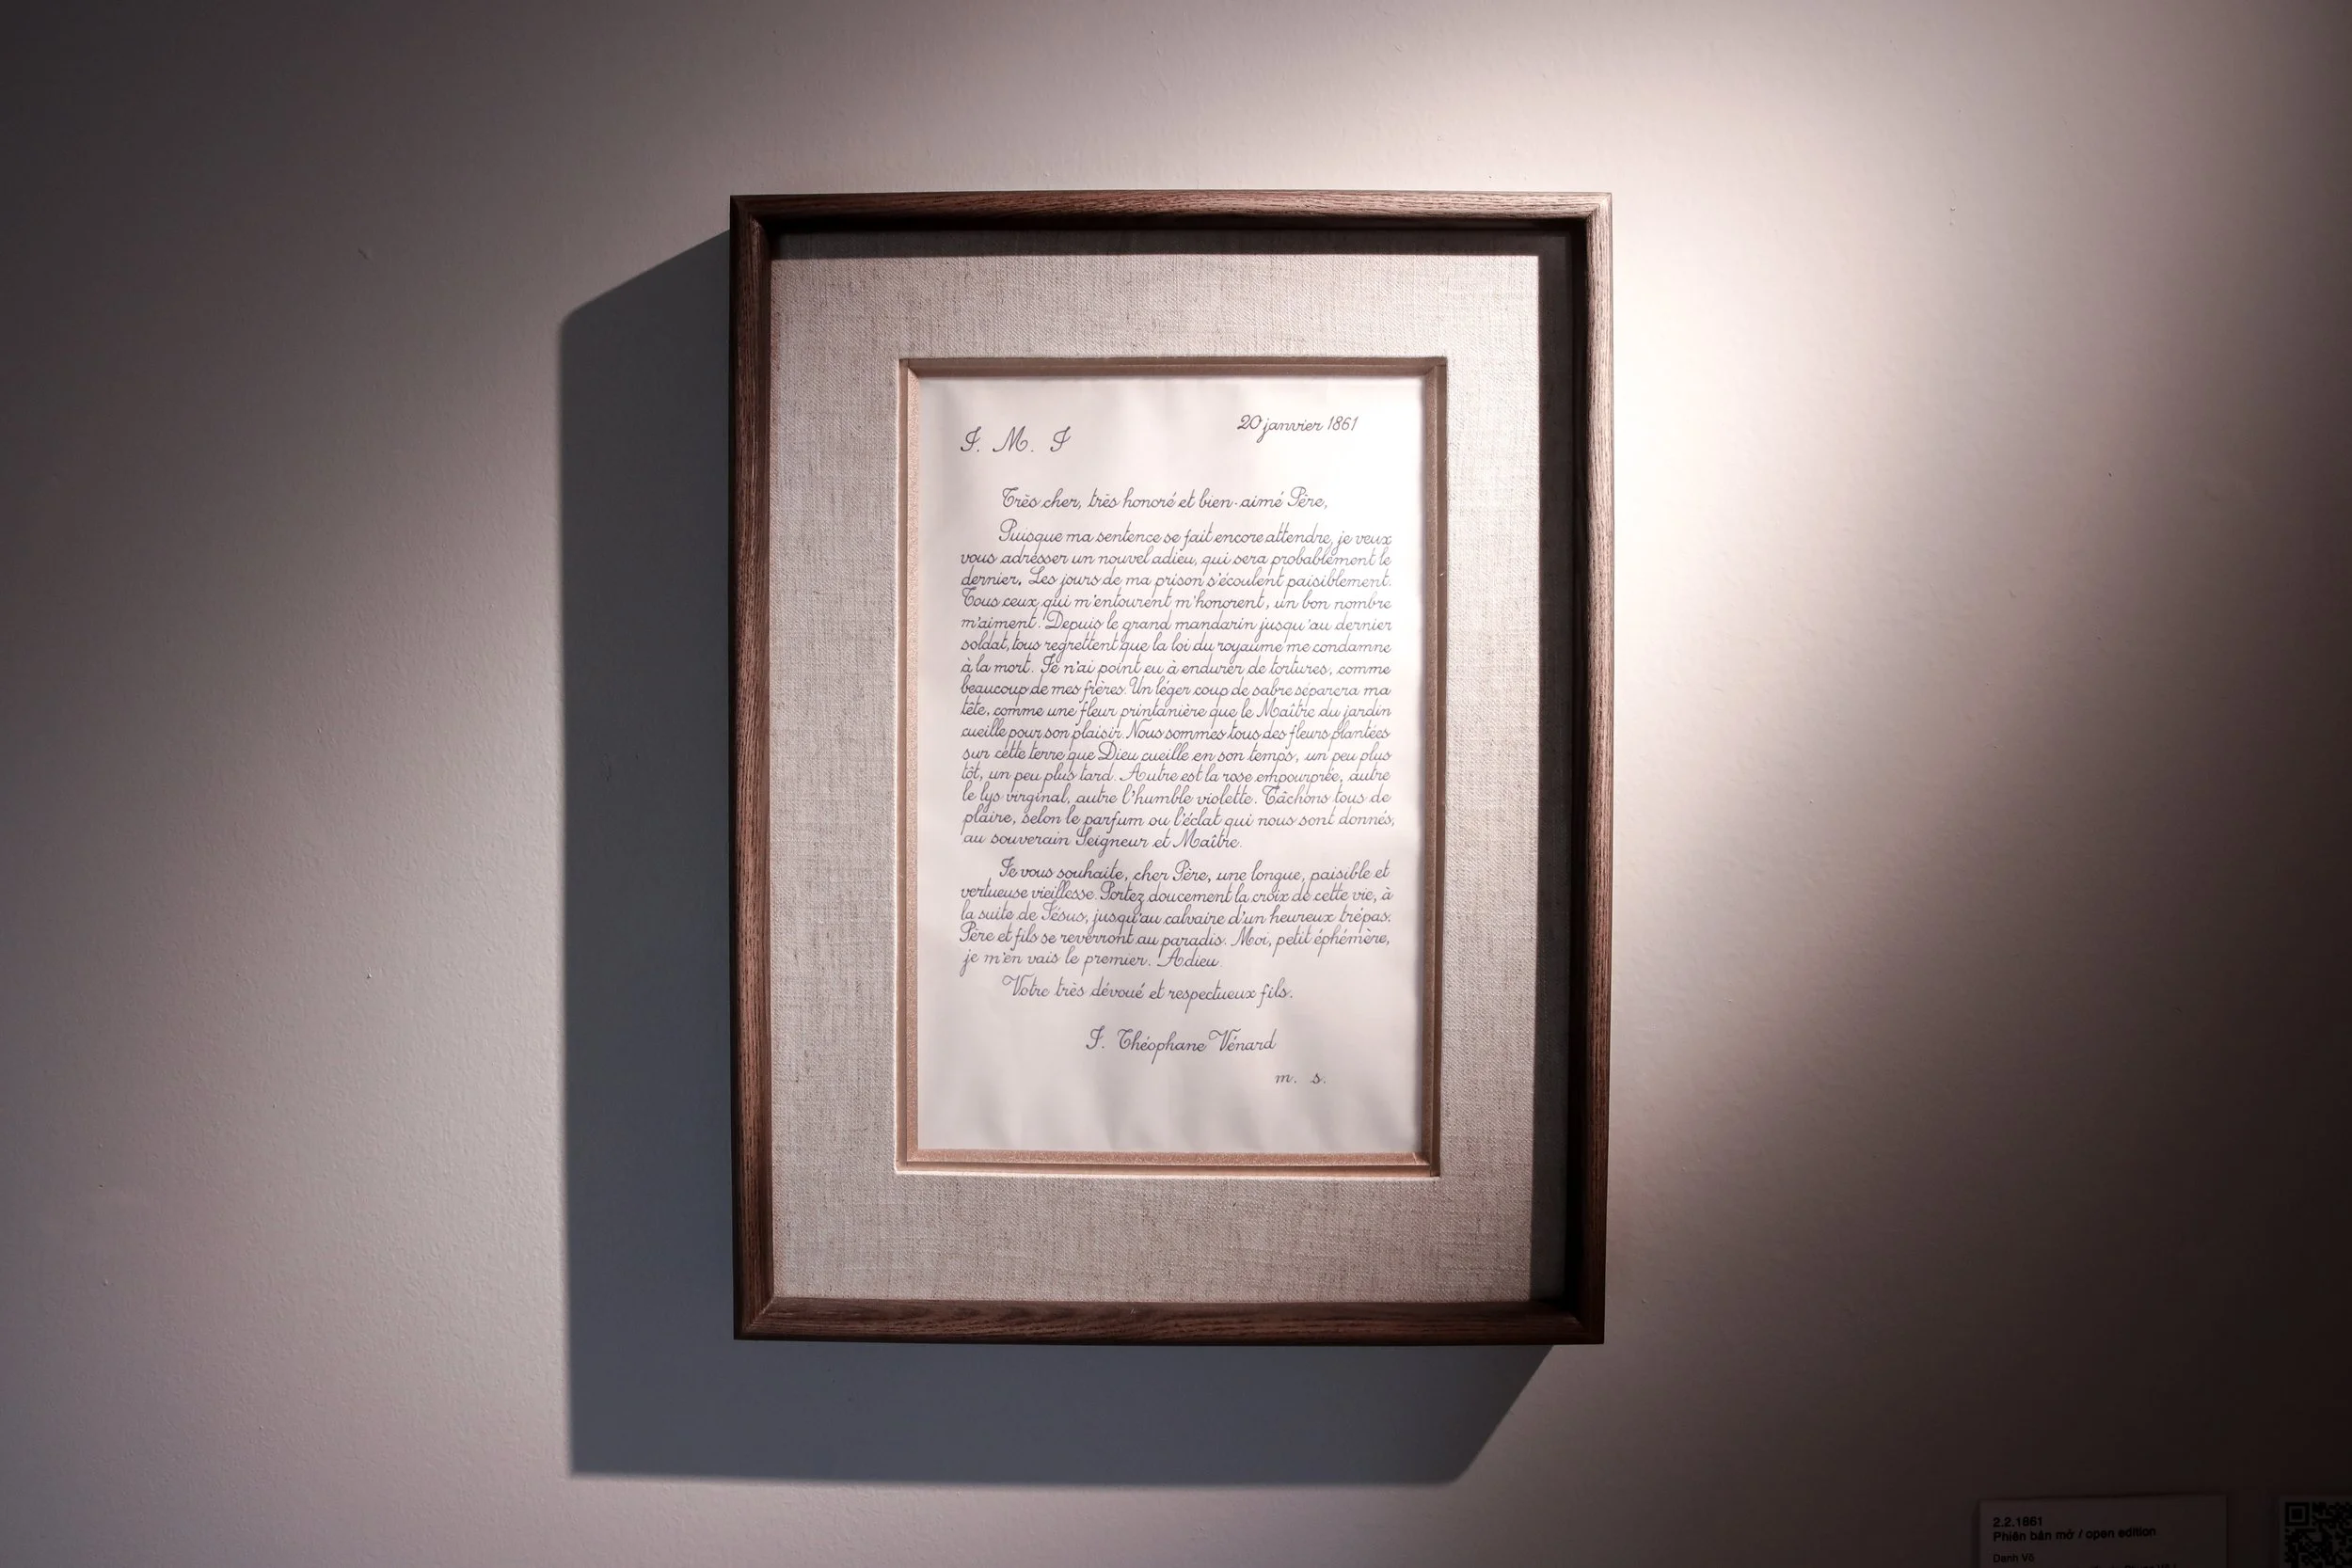 20 janvier 1861
J. M. J
Très cher, très honoré et bien-aimé Père,
Puisque ma sentence se fait encore attendre, je veux
vous adresser un nouvel adieu, qui sera probablement le
dernier. Les jours de ma prison s'écoulent paisiblement.
Tous ceux qui m'entourent m'honorent, un bon nombre
m'aiment. Depuis le grand mandarin jusqu'au dernier
soldat, tous regrettent que la loi du royaume me condamne
à la mort. Je n'ai point eu à endurer de tortures, comme
beaucoup de mes frères. Un léger coup de sabre séparera ma
tête, comme une fleur printanière que le Maître du jardin
cueille pour son plaisir. Nous sommes tous des fleurs plantées
sur cette terre que Dieu cueille en son temps, un peu plus
tôt, un peu plus tard. Autre est la rose empourprée, autre
le lys virginal, autre l'humble violette. Tâchons tous de
plaire, selon le parfum ou l'éclat qui nous sont donnés,
au souverain Seigneur et Maître.
Je vous souhaite, cher Père, une longue, paisible et
vertueuse vieillesse. Portez doucement la croix de cette vie, à
la suite de Jésus, jusqu'au calvaire d'un heureux trépas.
Père et fils se reverront au paradis. Moi, petit éphémère,
je m'en vais le premier. Adieu.
Votre très dévoué et respectueux fils.
J. Théophane Vénard
m. s.
2.2.1861
Phiên bản mở / open edition
Danh Võ